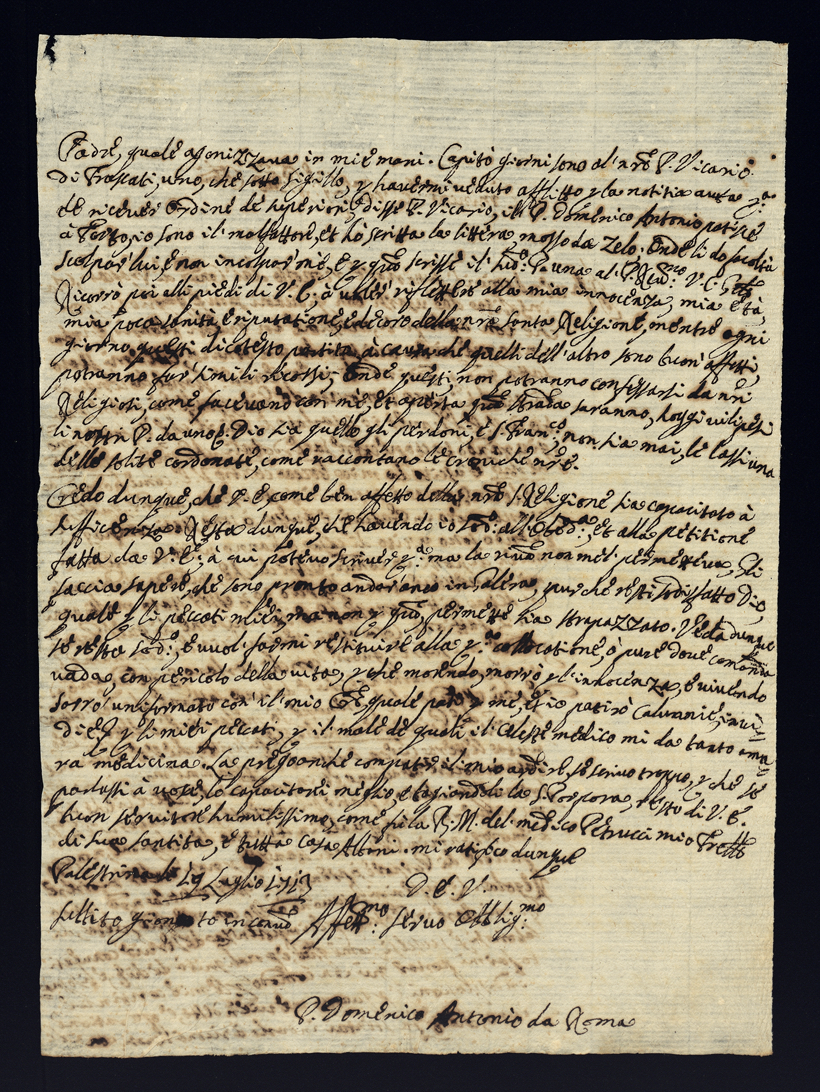 Padre, quale agonizzava in mie mani. Capitò giorni sono al nrõ P. Vicario
di Frascati, uno, che sotto sigillo, p havermi veduto afflitto p la notitia avuta
de ricever Ordine de superiori, disse P. Vicario, il P. Domenico Antonio patisce
à torto, io sono il malfattore, et ho scritta la littera mosso da Zelo. Onde li do facoltà
scolpar lui, è non incolpar mè, è p qũo scrisse il una al P. V. G.
Ricorro poi alli piedi di V. E. à voler riflettere alla mia innocenza, mia età,
mia poca sanità, è riputatione, è decoro della nrã santa Religione, mentre ogni
giorno, questi di cotesto partito, à causa che quelli dell'altro sono buon' affetti,
potranno far simili ricorsi; Onde questi, non potranno confessarsi da nrĩ
Religiosi, come facevano con mè, et aperta qũa strada saranno, hoggi vilipesi
li nostri P. da uno. Dio sia quello gli perdoni, è S. Fran.co non sia mai, le lassi una
delle solite cordonate, come raccontano le croniche nrẽ.
Credo dunque, che V. E. come ben affetto della nrã S. Religione sia capacitato à
sufficienza. Resta dunque, che havendo io all' et alla petitione
fatta da V. E. à cui potevo scriver ma la non mel permetteva, li
faccia sapere, che sono pronto andar anco in Galera, purche resti sodisfatto Dio,
quale p li peccati miei, ma non p qũo, permette sia strapazzato. Veda dunque
se resta è vuol farmi restituire alla collocatione, ò pure dove comanda
vada, con pericolo della vita, p che morendo, morrò p l'innocenza, è vivendo
sarrò uniformato con il mio quale patì p mè, et io patirò Calunnie, invi=
die, p li miei peccati, p il male de quali il Celeste medico mi da tanto ama=
ra medicina. La prego anche compatir il mio ardire, se scrivo troppo, p che se
parlassi à voce, lo capacitarei meglio, è bagiandoli la S. Porpora, resto di V. E.
buon servitore humilissimo, come si la B. M. del medico Petrucci mio Fratello
di sua santità, è tutta Casa Albani. mi ratifico dunque
Palestrina li 19 Luglio 1713
D. E. V.
Affett.mo servo Obblig.mo
P. Domenico Antonio da Roma